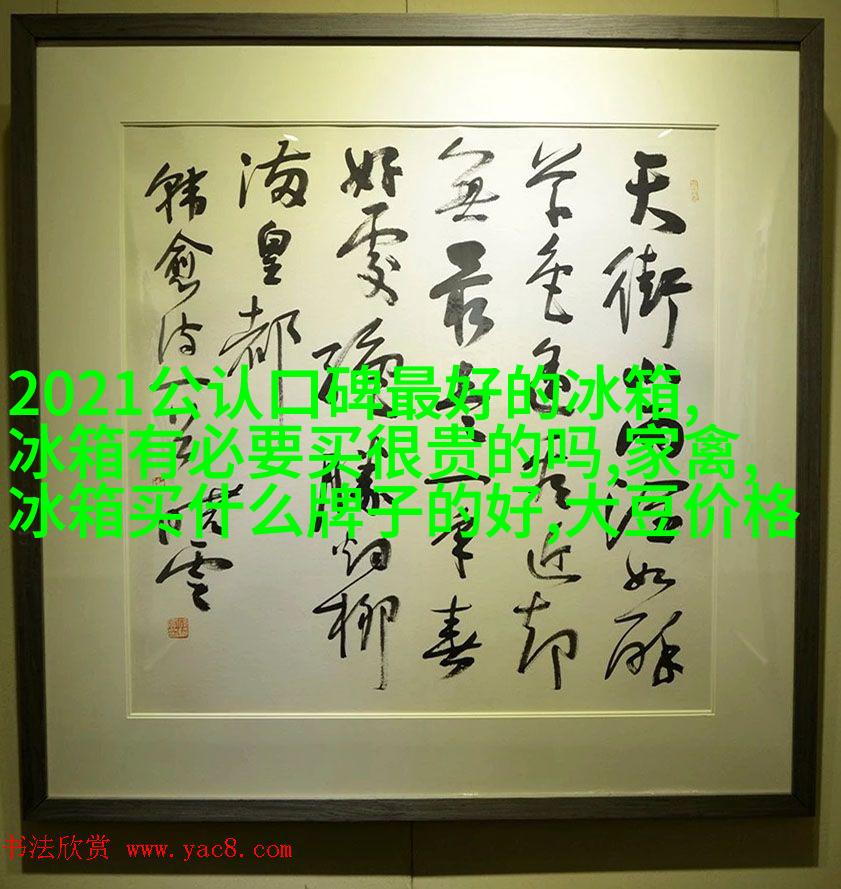 天街小雨润如酥
草色遥看近却
無最是一年春
好處绝勝烟柳
满皇都
韩愈诗
2021公认口碑最好的冰箱,
冰箱有必要买很贵的吗,家禽,
冰箱买什么牌子的好,大豆价格
书法欣赏 www.yac8.com